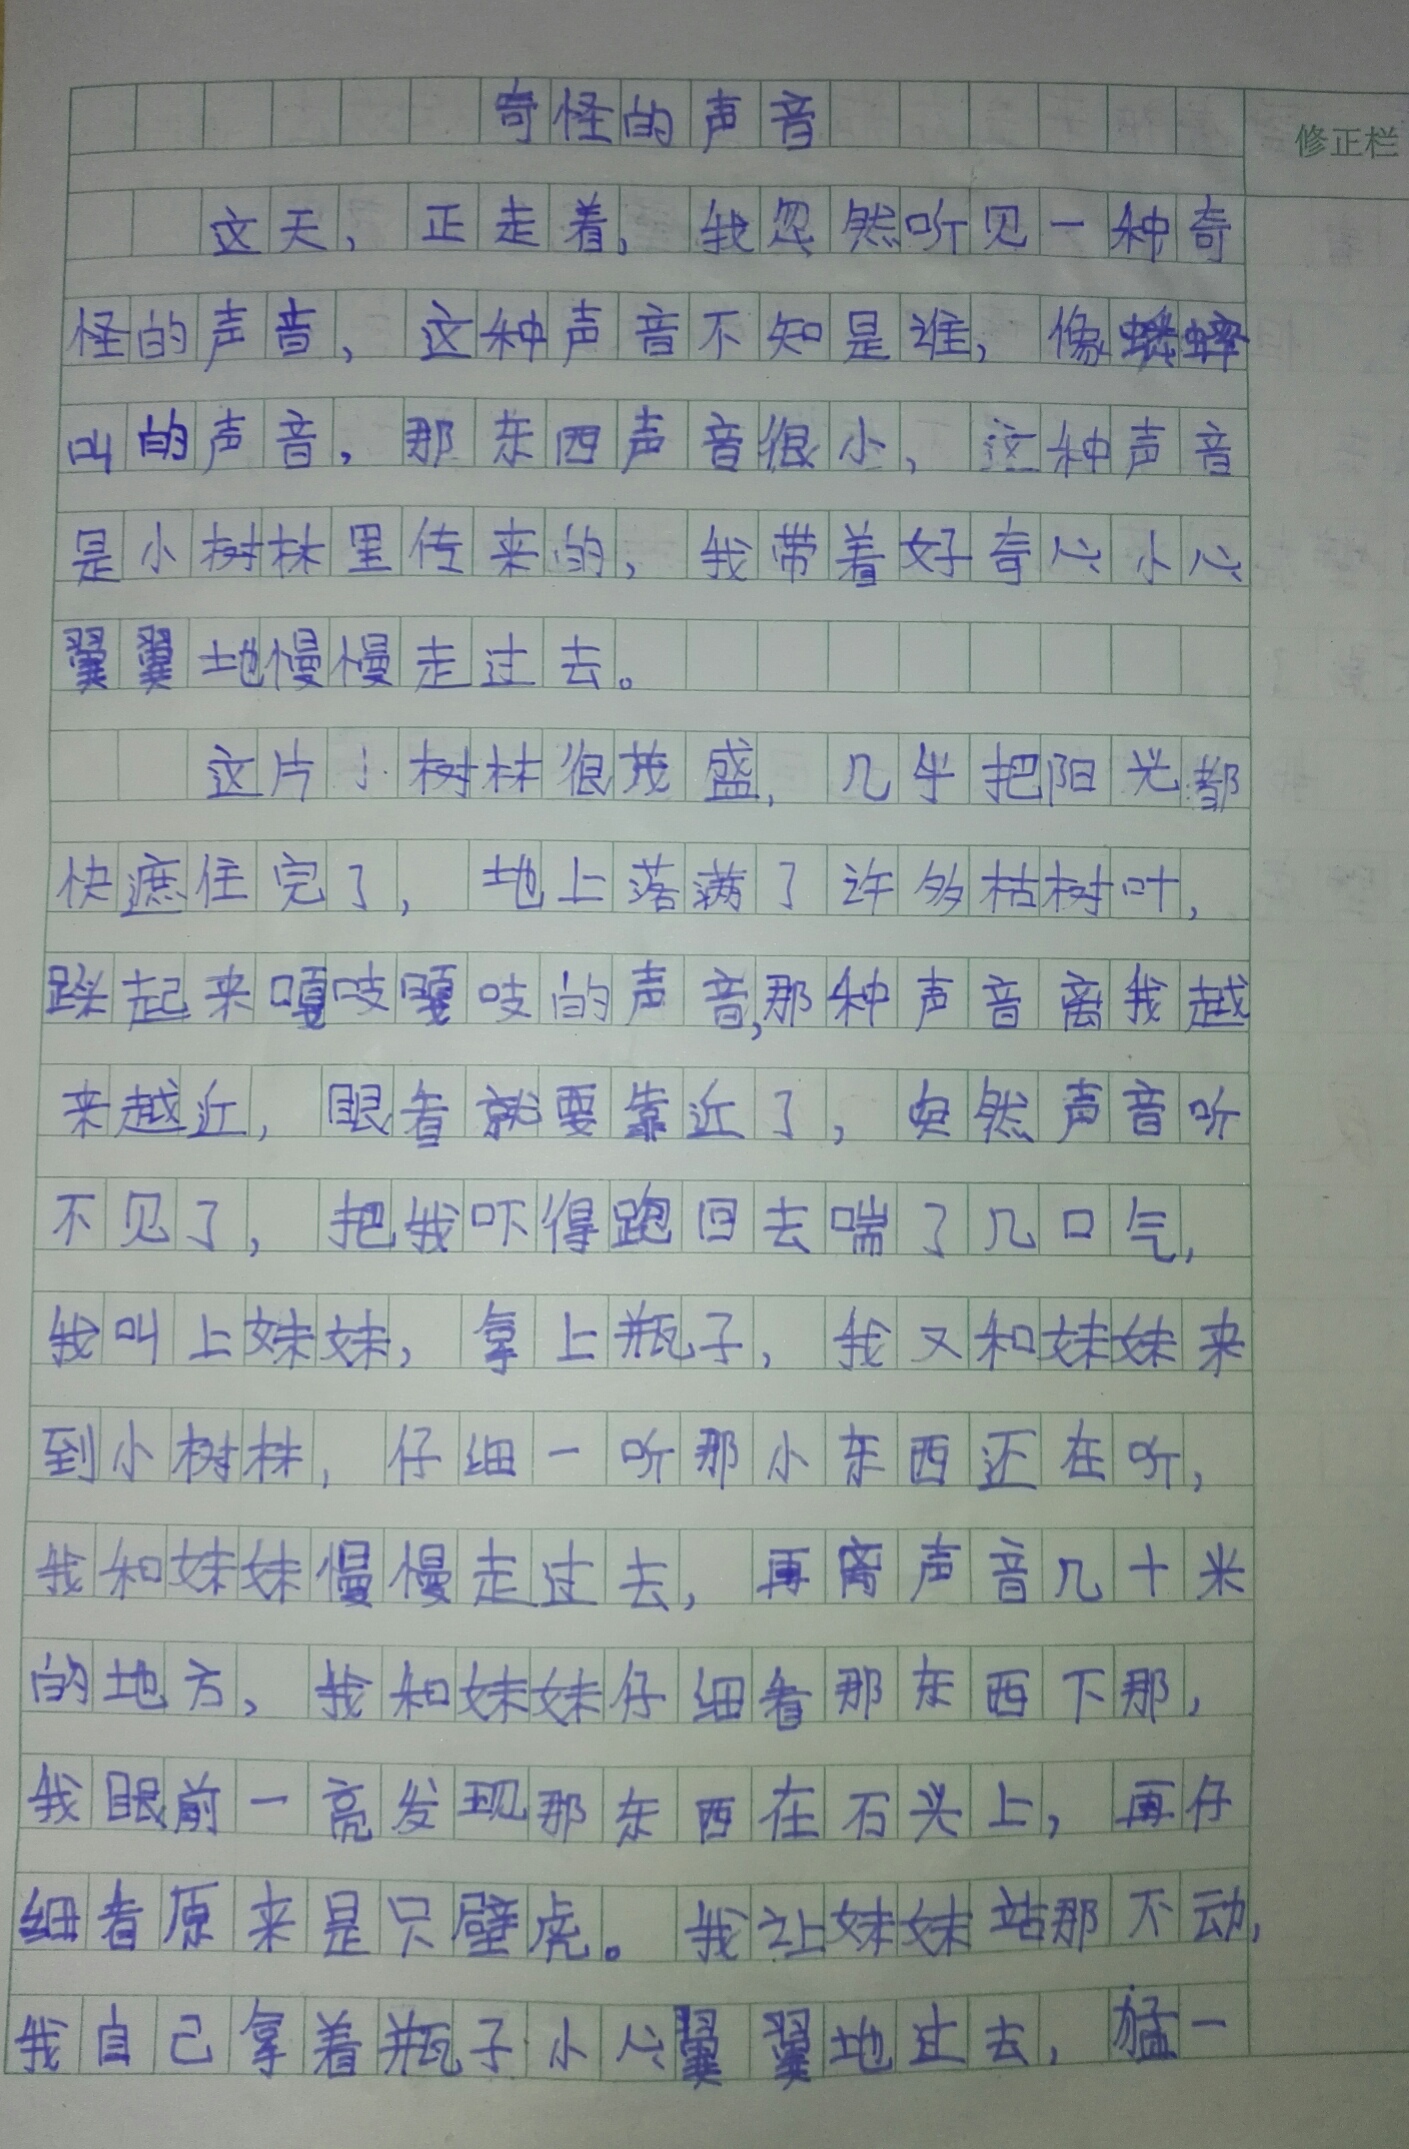 奇怪的声音
修正栏
这天，正走着，我忽然听见一种奇
怪的声音，这种声音不知是谁，像蟋蟀
叫的声音，那东西声音很小，这种声音
是小树林里传来的，我带着好奇心小心
翼翼地慢慢走过去。
这片小树林很茂盛，几乎把阳光都
快遮住完了，地上落满了许多枯树叶，
踩起来嘎吱嘎吱的声音，那种声音离我越
来越近，眼看就要靠近了，突然声音听
不见了，把我吓得跑回去喘了几口气，
我叫上妹妹，拿上瓶子，我又和妹妹来
到小树林，仔细一听那小东西还在听，
我和妹妹慢慢走过去，再离声音几十米
的地方，我和妹妹仔细看那东西下那，
我眼前一亮发现那东西在石头上，再仔
细看原来是只壁虎。我让妹妹站那不动，
我自己拿着瓶子小心翼翼地过去，猛一